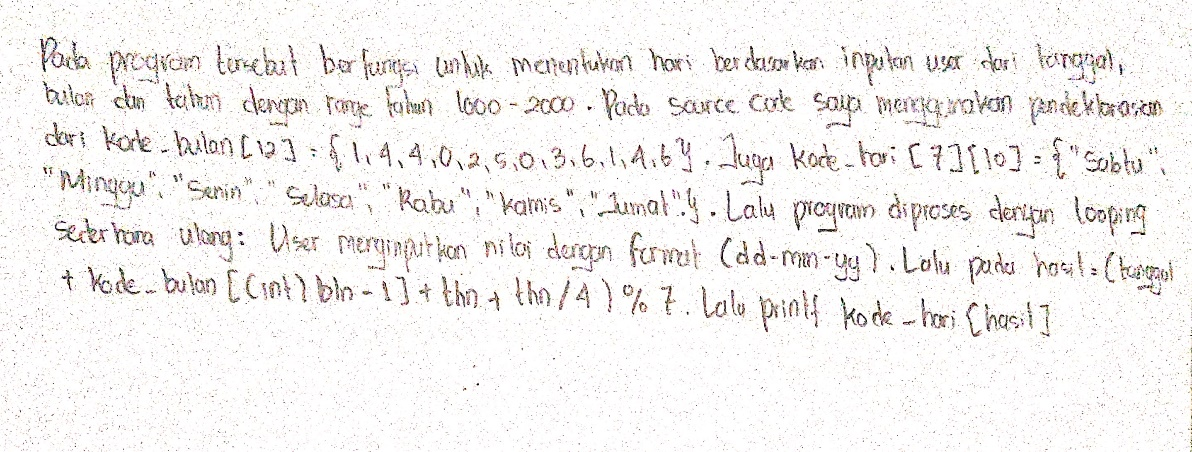 Pada program tersebut berfungsi untuk menentukan hari berdasarkan inputan user dari tanggal,
bulan dan tahun dengan range tahun 1600 - 2000. Pada source code saya menggunakan pendeklarasian
dari kode_bulan[12] = {1,4,4,0,2,5,0,3,6,1,4,6}. Juga kode_hari[7][10] = {"Sabtu",
"Minggu", "Senin", "Selasa", "Rabu", "Kamis", "Jumat".}. Lalu program diproses dengan looping
sederhana ulang: User menginputkan nilai dengan format (dd-mm-yy). Lalu pada hasil = (tanggal
+ kode_bulan[(int) bln - 1] + thn + thn/4) % 7. Lalu printf kode_hari [hasil]